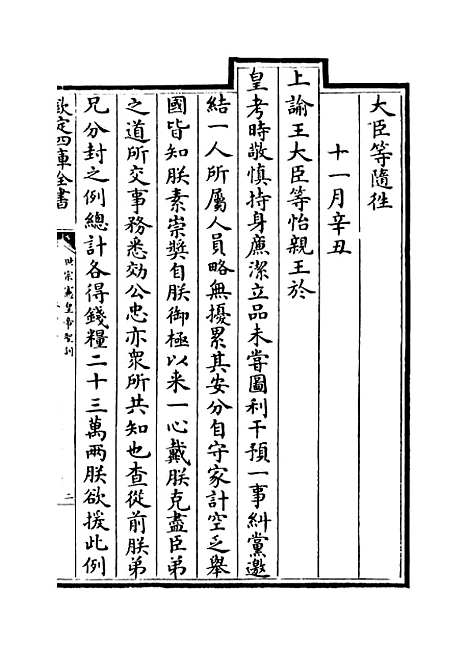 大臣等隨徃
十一月辛丑
上諭王大臣等怡親王於
皇考時敬慎持身廉潔立品未嘗圖利干預一事糾黨邀
結一人所屬人員略無擾累其安分自守家計空乏舉
國皆知朕素崇奬自朕御極以来一心戴朕克盡臣弟
之道所交事務悉効公忠亦衆所共知也查從前朕弟
兄分封之例總計各得錢糧二十三萬兩朕欲援此例
欽定四庫全書
世宗憲皇帝聖訓
二